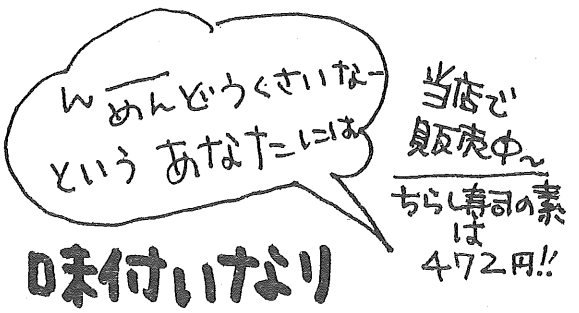 ん━めんどうぐさいなー
という あなたには
味付いなり
当店で
販売中~
ちらし寿司の素
は
472円!!